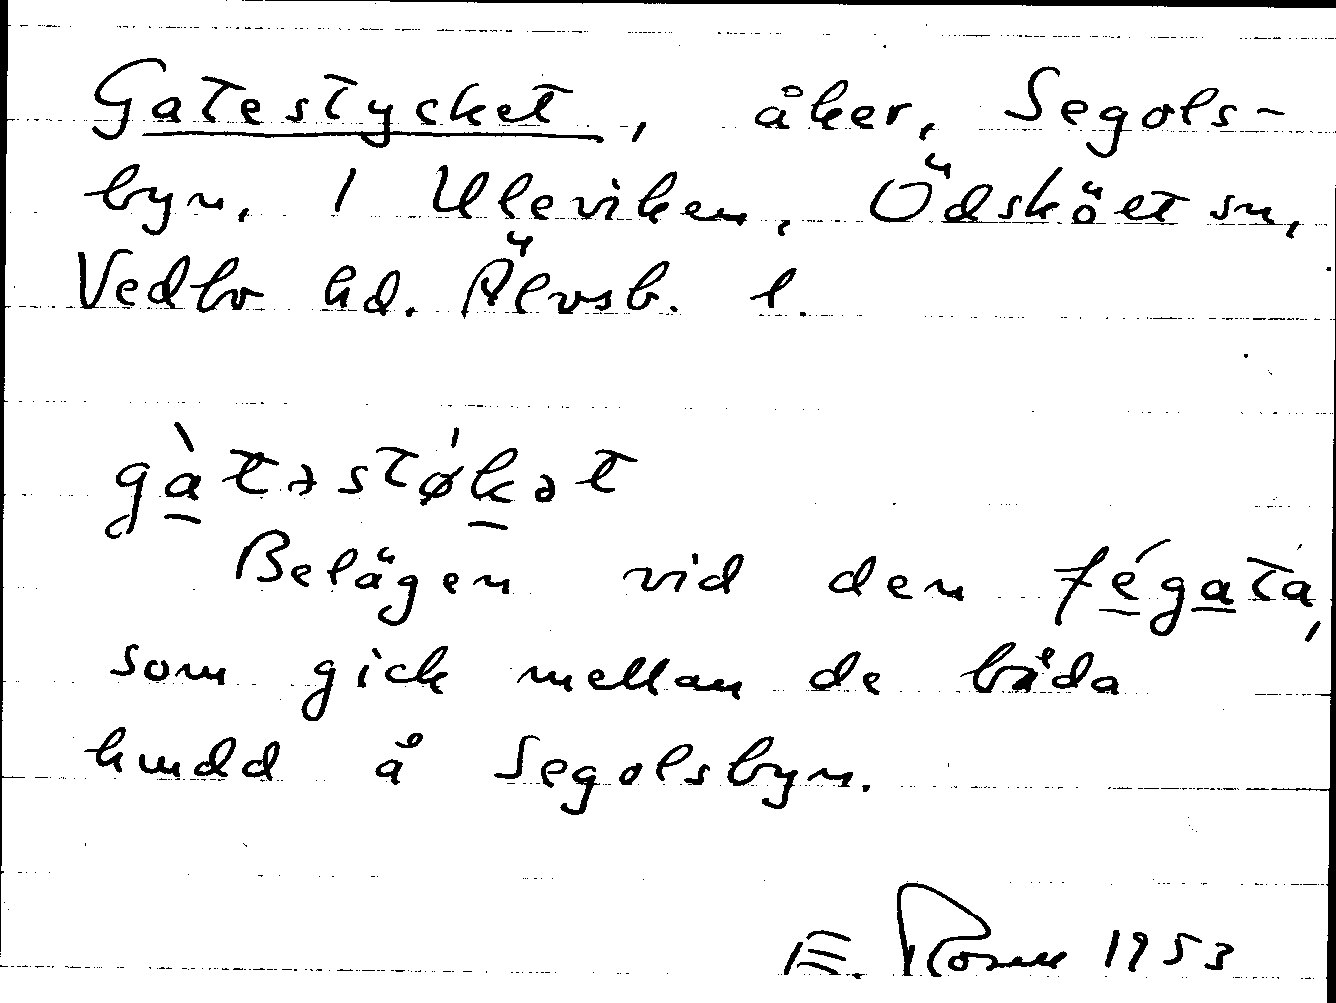 Gatestycket, åker, Segols-
byn, 1 Uleviken, Ödsköet sn,
Vedbo hd. Älvsb. l.
gàtəstǿkət
Belägen vid den fégata,
som gick mellan de båda
hmdd å Segolsbyn.
E. 1953